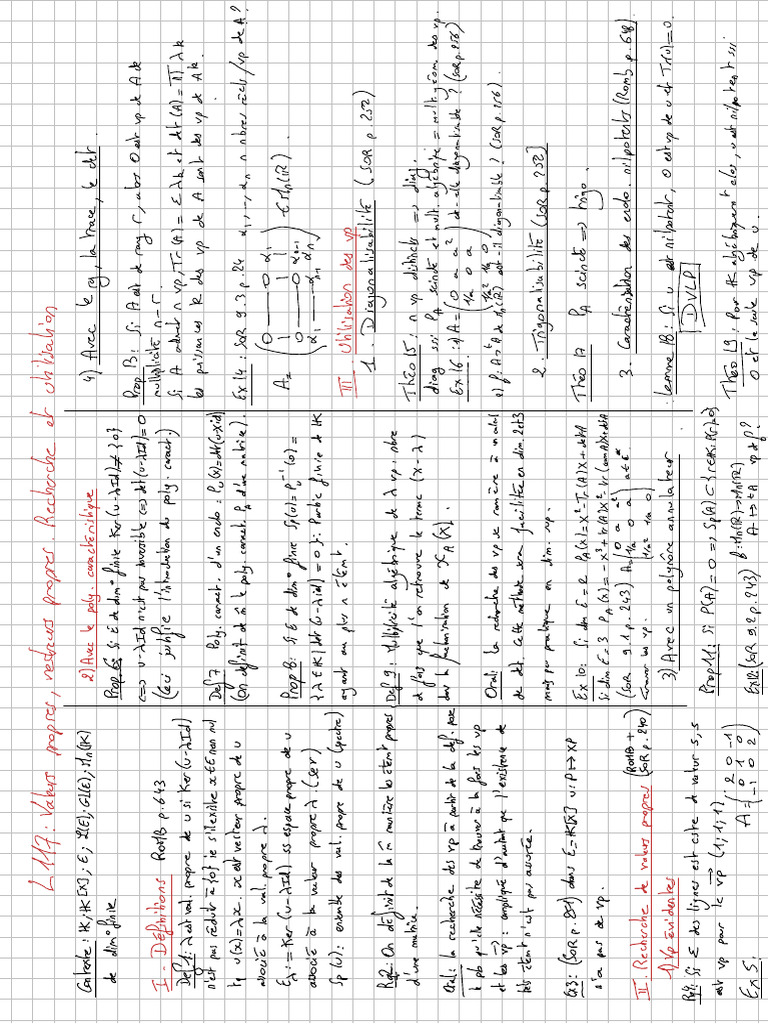 L 117 : Valeurs propres, vecteurs propres. Recherche et utilisation
Contexte : K, K[X] ; E ; L(E), GL(E), Mn(K)
de dim° finie
I - Définitions ROMB p. 643
Def 1 : λ est val. propre de u si Ker(u-λId)
n'est pas réduit à {0} ie s'il existe x∈E non nul
tq u(x)=λx. x est vecteur propre de u
associé à la val. propre λ.
Eλ := Ker(u-λId) ss espace propre de u
associé à la valeur propre λ. (sev)
Sp(u) : ensemble des val. propre de u (spectre)
Rq 2 : On définit de la m manière les élémt propres
d'une matrice.
Oral : la recherche des vp à partir de la def. pose
le pb qu'elle nécessite de trouver à la fois les vp
et les vp→ : compliqué d'autant que l'existence de
tels élémt n'est pas assurée.
Ex 3 : (SOR p. 251) dans E=K[X] u : P↦XP
n'a pas de vp.
II - Recherche de valeurs propres (ROMB + SOR p. 240)
1) Vp évidentes
Rq 4 : Si Σ des lignes est cste de valeur s, s
est vp pour le vp→ (1;1;1)
Ex 5 : A = ( 2 0 -1
0 1 0
-1 0 2 )
2) Avec le poly. caractéristique
Prop 6 : Si E de dim° finie Ker(u-λId) ≠ {0}
⟺ u-λId n'est pas inversible ⟺ det(u-λId)=0
(ceci justifie l'introduction du poly. caract)
Def 7 : Poly. caract. d'un endo : Pu(X)=det(u-XId)
(on définit de m le poly. caract. PA d'une matrice).
Prop 8 : Si E de dim° finie Sp(u) = Pu⁻¹(0) =
{λ∈K | det(u-λId) = 0} : Partie finie de K
ayant au plus n élémt.
Def 9 : Multiplicité algébrique de λ vp : nbre
de fois que l'on retrouve le terme (X-λ)
dans la factorisation de χA(X).
Oral : la recherche des vp se ramène à un calcul
de det. Cette méthode sera facilitée en dim. 2 et 3
mais peu pratique en dim. sup.
Ex 10 : Si dim E=2 PA(X)=X²-Tr(A)X+det A
Si dim E=3 PA(X)=-X³+tr(A)X²-tr(com A)X+det A
(SOR 9.1 p. 243) A = ( 0 a a²
1/a 0 a
1/a² 1/a 0 ) a∈ℝ*
Trouver les vp.
3) Avec un polynôme annulateur
Prop 11 : Si P(A)=0 ⟹ Sp(A)⊂{r∈K, P(r)=0}
Ex 12 (SOR 9.2 p. 243) f : Mn(ℝ)→Mn(ℝ)
A ↦ ᵗA vp de f ?
4) Avec le rg, la trace, le det.
Prop 13 : Si A est de rang r, alors 0 est vp de A de
multiplicité n-r
Si A admet n vp, Tr(A) = Σ λk et det(A) = Π λk
les puissances k des vp de A sont des vp de A^k.
Ex 14 : SOR 9.3 p. 24 α1,...,αn n nbres réels / vp de A ?
A = ( 0 — 0 α1
0 — 0 αn-1
α1 — αn-1 αn ) ∈ Mn(ℝ).
III - Utilisation des vp
1. Diagonalisabilité (SOR p. 252)
Théo 15 : n vp distinctes ⟹ diag.
diag ssi PA scindé et mult. algébrique = mult. géom. des vp.
Ex 16 : 1) A = ( 0 a a²
1/a 0 a
1/a² 1/a 0 ) est-elle diagonalisable ? (SOR p. 256)
2) f : A↦ᵗA de Mn(ℝ) est-il diagonalisable ? (SOR p. 256).
2. Trigonalisabilité (SOR p. 252)
Théo 17 PA scindé ⟹ trigo.
3. Caractérisation des endo. nilpotents (Romb p. 648)
Lemme 18 : Si u est nilpotent, 0 est vp de u et Tr(u)=0.
DVLP
Théo 19 : Pour K algébriquement clos, u est nilpotent ssi
0 est la seule vp de u.